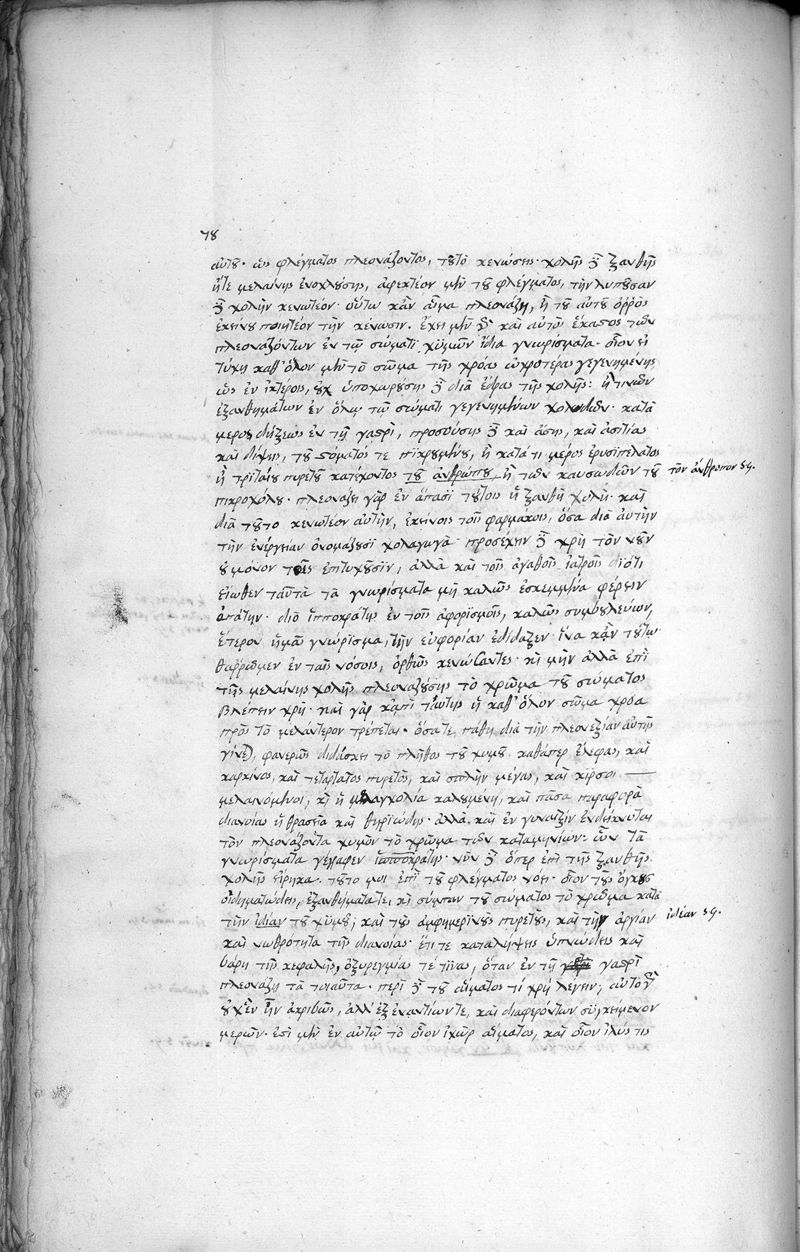 78
αὐτοῦ. ὡς φλέγματος πλεονάζοντος, τοῦτο κενώσεις. χολῆς δὲ ξανθῆς
ἤτε μελαίνης ἐνοχλούσης, ἀφεκτέον μὲν τοῦ φλέγματος, τὴν λυποῦσαν
δὲ χολὴν κενωτέον. οὕτω κἂν αἷμα πλεονάζῃ, ἢ τοῦ αὐτοῦ ὀρρὸς
ἐκείνου ποιητέον τὴν κένωσιν. ἔχει μὲν δὲ καὶ αὐτὸς ἕκαστος τῶν
πλεοναζόντων ἐν τῷ σώματι χυμῶν ἴδια γνωρίσματα. οἷον εἰ
τύχῃ καθ' ὅλον μὲν τὸ σῶμα τῆς χρόας ὠχροτέρας γεγενημένης
ὡς ἐν ἰκτέροις, οὐχ ὑποχωρούσης δὲ διὰ ἕδρας τῆς χολῆς: ἤ τινων
ἐξανθημάτων ἐν ὅλῳ τῷ σώματι γεγενημένων χολωδῶν. κατὰ
μέρος δήξεως ἐν τῇ γαστρὶ, προσούσης δὲ καὶ ἄσης, καὶ ἀσιτίας
καὶ δίψης, τοῦ στόματός τε πικρουμένου, ἢ κατά τι μέρος ἐρυσιπέλατος
ἢ τριταίου πυρετοῦ κατέχοντος τοῦ ἀνθρώπου ἢ τῶν καυσωδῶν τοῦ τὸν ἄνθρωπον
πικροχόλου. πλεονάζει γὰρ ἐν ἅπασι τούτοις ἡ ξανθὴ χολή. καὶ
διὰ τοῦτο κενωτέον αὐτὴν, ἐκείνοις τοῖς φαρμάκοις, ὅσα διὰ αὐτὴν
τὴν ἐνέργειαν ὀνομάζουσι χολαγωγά. προσέχειν δὲ χρὴ τὸν νοῦν
οὐ μόνον τοῖς ἐπιτυχοῦσιν, ἀλλὰ καὶ τοῖς ἀγαθοῖς ἰατροῖς διότι
εἴωθεν ταῦτα τὰ γνωρίσματα μὴ καλῶς ἐσκεμμένα φέρειν
ἀπάτην. διὸ ἱπποκράτης ἐν τοῖς ἀφορισμοῖς, καλῶς συμβουλεύων,
ἕτερον ἡμᾶς γνώρισμα, τὴν εὐφορίαν ἐδίδαξεν. ἵνα κἂν τούτῳ
θαρρῶμεν ἐν ταῖς νόσοις, ὀρθῶς κενώσαντες. οὐ μὴν ἀλλὰ ἐπὶ
τῆς μελαίνης χολῆς πλεοναζούσης τὸ χρῶμα τοῦ σώματος
βλέπειν χρή. καὶ γὰρ κἀπὶ ταύτης ἡ καθ' ὅλον σῶμα χρόα
πρὸς τὸ μελάντερον τρέπεται. ὅσα τε πάθη διὰ τὴν πλεονεξίαν αὐτῆς
γίνεται, φανερῶς διδάσκει τὸ πλῆθος τοῦ χυμοῦ. καθάπερ ἐλέφας, καὶ
καρκίνος, καὶ τεταρταῖος πυρετὸς, καὶ σπλὴν μέγας, καὶ κιρσοὶ
μελαινόμενοι, καὶ ἡ μελαγχολία καλουμένη, καὶ πᾶσα παραφορὰ
διανοίας ἡ θρασεῖα καὶ θηριώδης. ἀλλὰ, καὶ ἐν γυναιξὶν ἐνδείκνυται
τὸν πλεονάζοντα χυμὸν τὸ χρῶμα τῶν καταμηνίων. ὧν τὰ
γνωρίσματα γέγραφεν ἱπποκράτης. νῦν δὲ ὅπερ ἐπὶ τῆς ξανθῆς
χολῆς εἴρηκα. τοῦτό μοι ἐπὶ τοῦ φλέγματος νόει. οἷον τοὺς ὄγκους
οἰδηματώδεις, ἐξανθήματά τε, καὶ σύμπαν τοῦ σώματος τὸ χρῶμα κατὰ
τὴν ἰδίαν τοῦ χυμοῦ, καὶ τοὺς ἀμφημερινοὺς πυρετοὺς, καὶ τὴν ἀργίαν ἰδέαν
καὶ νωθρότητα τῆς διανοίας. ἔτι τε καταλήψεις ὑπνώδεις καὶ
βάρη τῆς κεφαλῆς, ὀξυρεγμίας τέ τινας, ὅταν ἐν τῇ γαστρὶ
πλεονάζῃ τὰ τοιαῦτα. περὶ δὲ τοῦ αἵματος τί χρὴ λέγειν; αὐτὸ γὰρ
οὐχ ἕν ἦν ἀκριβῶς, ἀλλ' ἐξ ἐναντίων τε, καὶ διαφερόντων συγκείμενον
μερῶν. ἔστι μὲν ἐν αὐτῷ τὸ οἷον ἰχὼρ αἵματος, καὶ οἷον ἰλύς τις